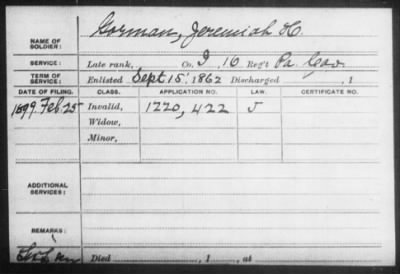 NAME OF SOLDIER: Gorman, Jeremiah H.
SERVICE: Late rank, Co. I, 16 Reg't Pa. Cav
TERM OF SERVICE: Enlisted Sept 15, 1862 Discharged , 1
DATE OF FILING. CLASS. APPLICATION NO. LAW. CERTIFICATE NO.
1899. Feb. 25 Invalid, 1220,422 J
Widow,
Minor,
ADDITIONAL SERVICES:
REMARKS:
Died , 1 , at